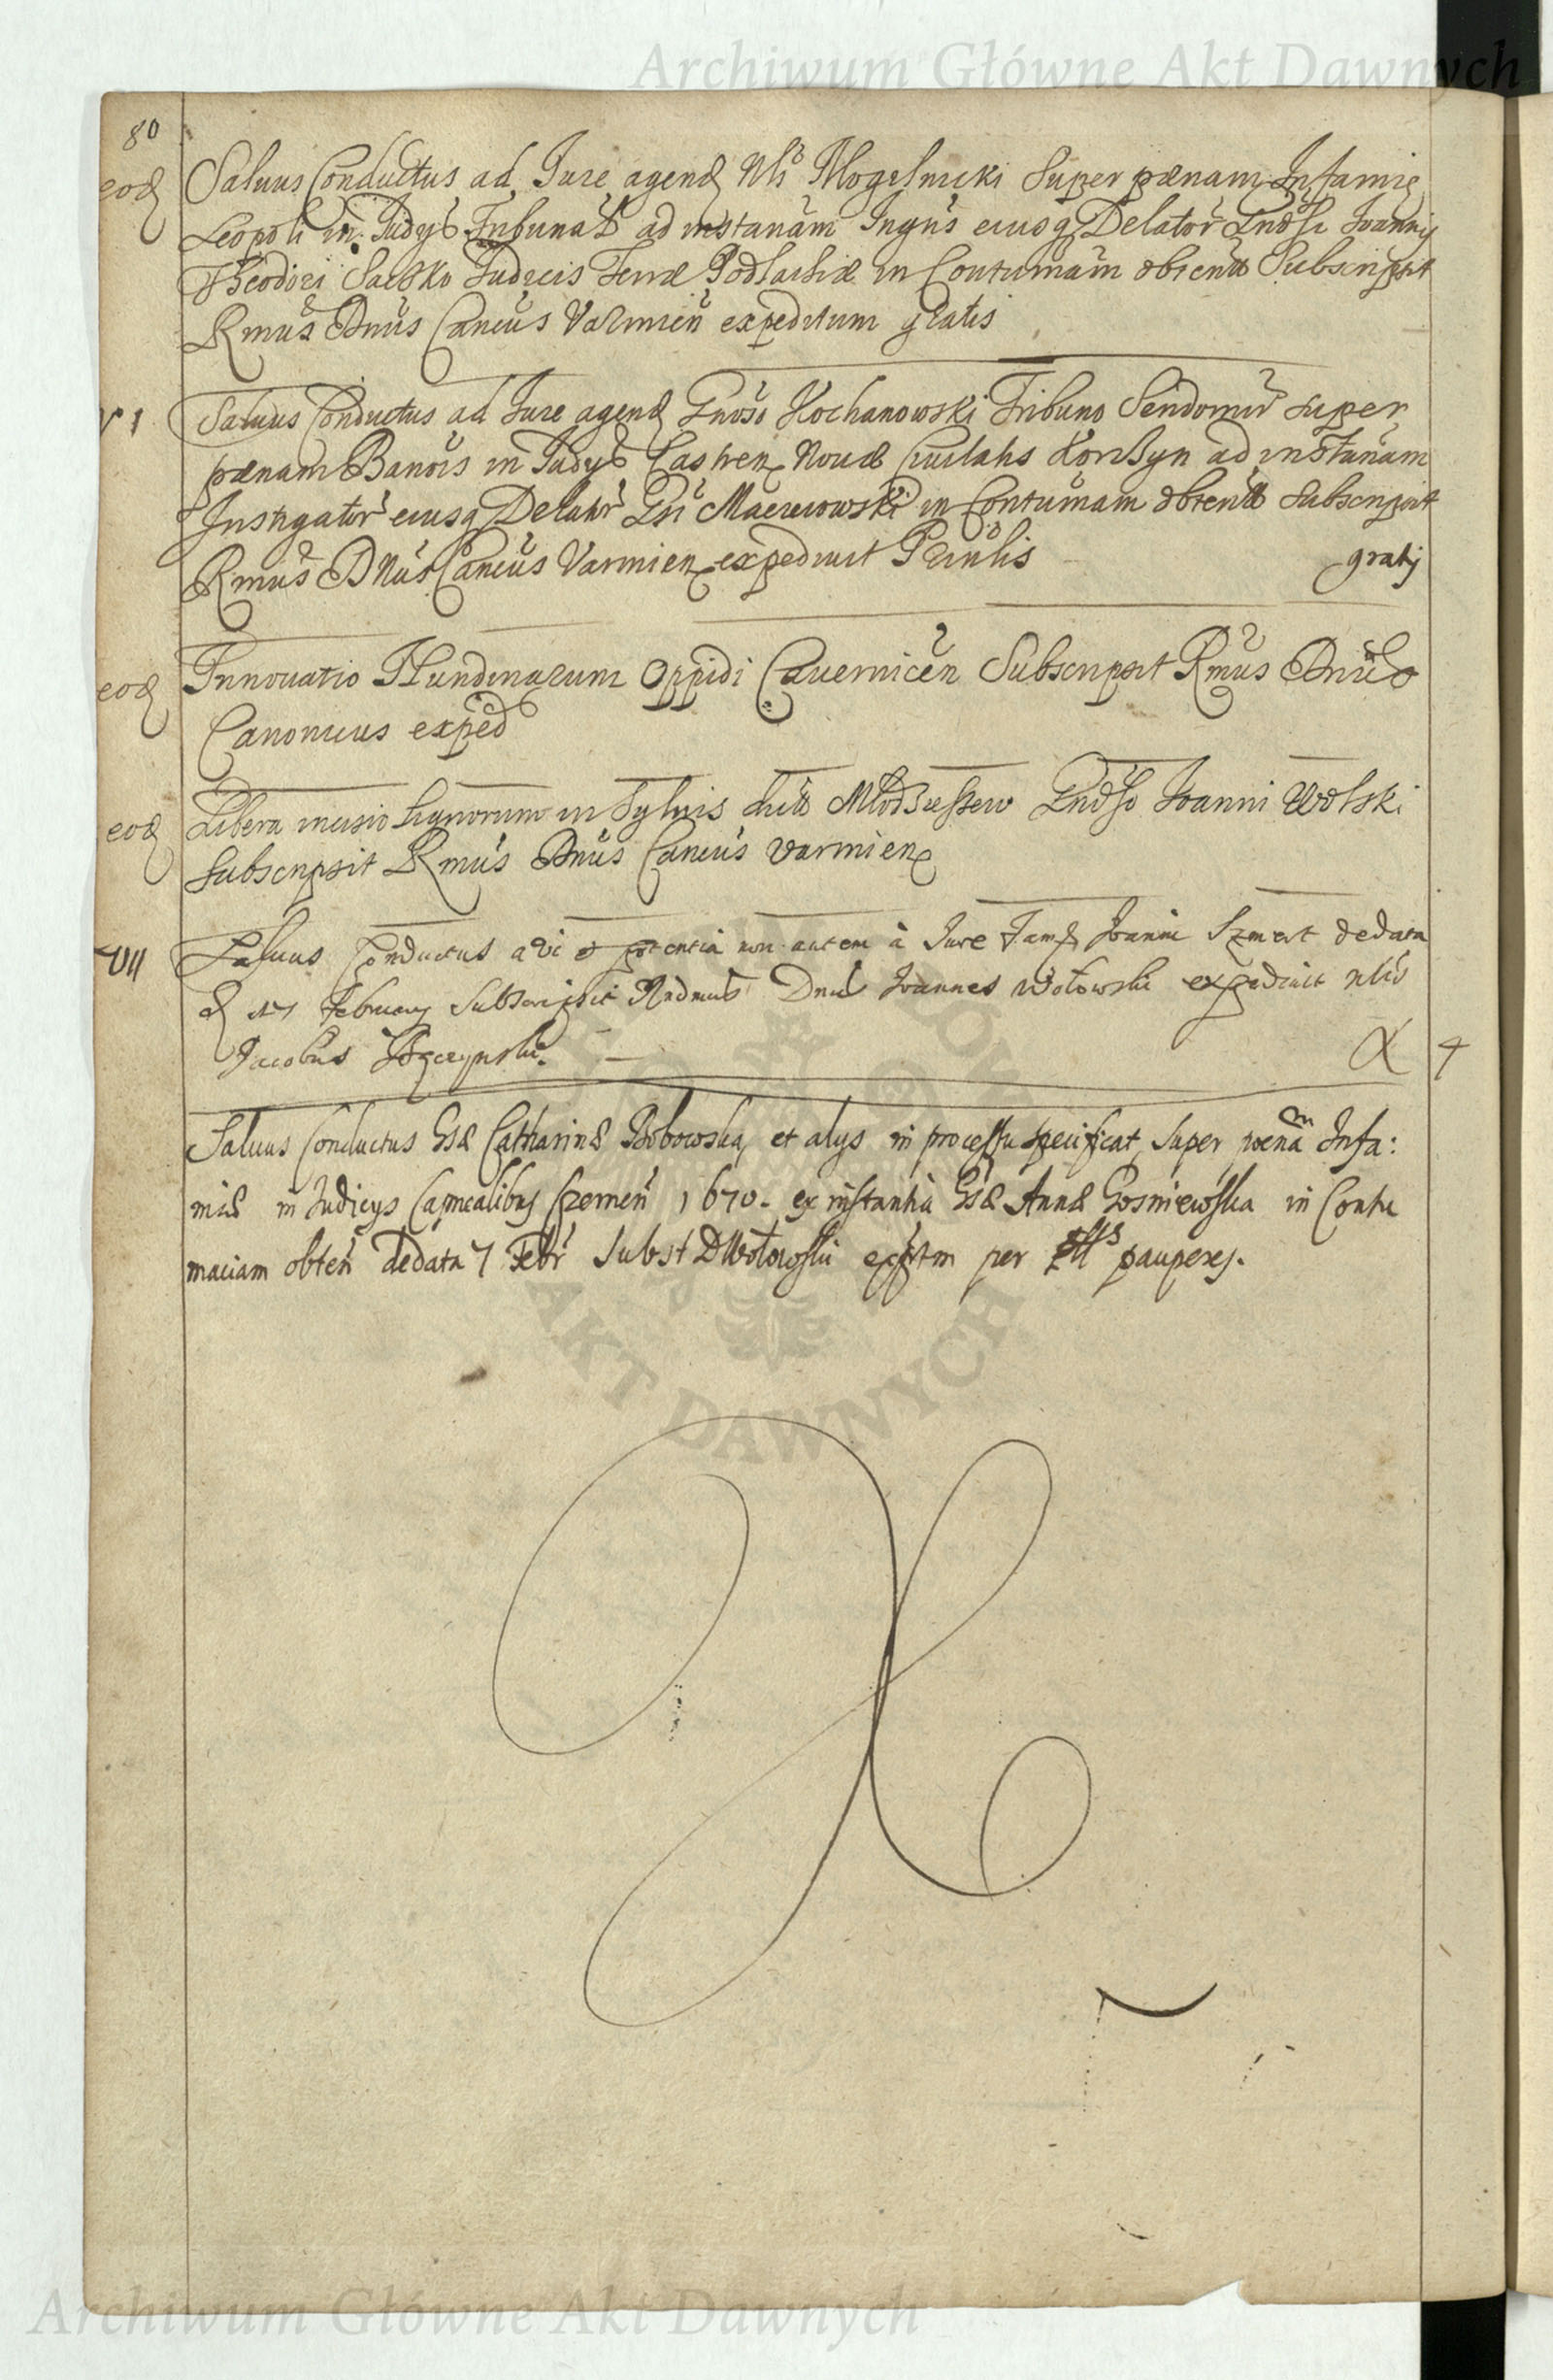 Archiwum Główne Akt Dawnych
80
eod Saluus Conductus ad Jure agend Nli Mogilnicki Super pænam Infamiæ
Leopoli in Judys Tribunal ad instanam Ingris eiusq Delator Gndsi Joannis
Theodori Judicis Terræ Podlachiæ in Contumam obtent Subscripsit
Rmus Dnus Cancus Varmien expeditum gratis
VI Saluus Conductus ad Jure agend Gnoso Kochanowski Tribuno Sendomir super
pænam Banois in Judys Castren Nouæ Ciuitatis Korczyn ad instanam
Instigator eiusq Delator Gsi in Contumam obtent subscripsit
Rmus Dnus Cancus Varmien expediuit gratis
eod Innouatio Nundinarum Oppidi Subscripsit Rmus Dnus
Canonicus exped
eod Libera incisio lignorum in syluis Gndso Joanni Wolski
subscripsit Rmus Dnus Cancus varmien
VII Saluus Conductus a vi et potentia non autem à Jure Fam Joanni dedata
d February Subscripsit Rndmus Dnus Joannes Wołowski expediuit nlis
Jacobus 4
Saluus Conductus Gsæ Catharinæ Bobowska, et alys in processu specificat, super poenam Infa:
miæ in Judicys Capnealibus Czernen 1670. ex instantia Gsæ Annæ Gosniewska in Contu
maciam obten dedata 7 Febr Subst D Wołowski per pauperes.
ARCHIWUM GŁÓWNE AKT DAWNYCH
Archiwum Główne Akt Dawnych